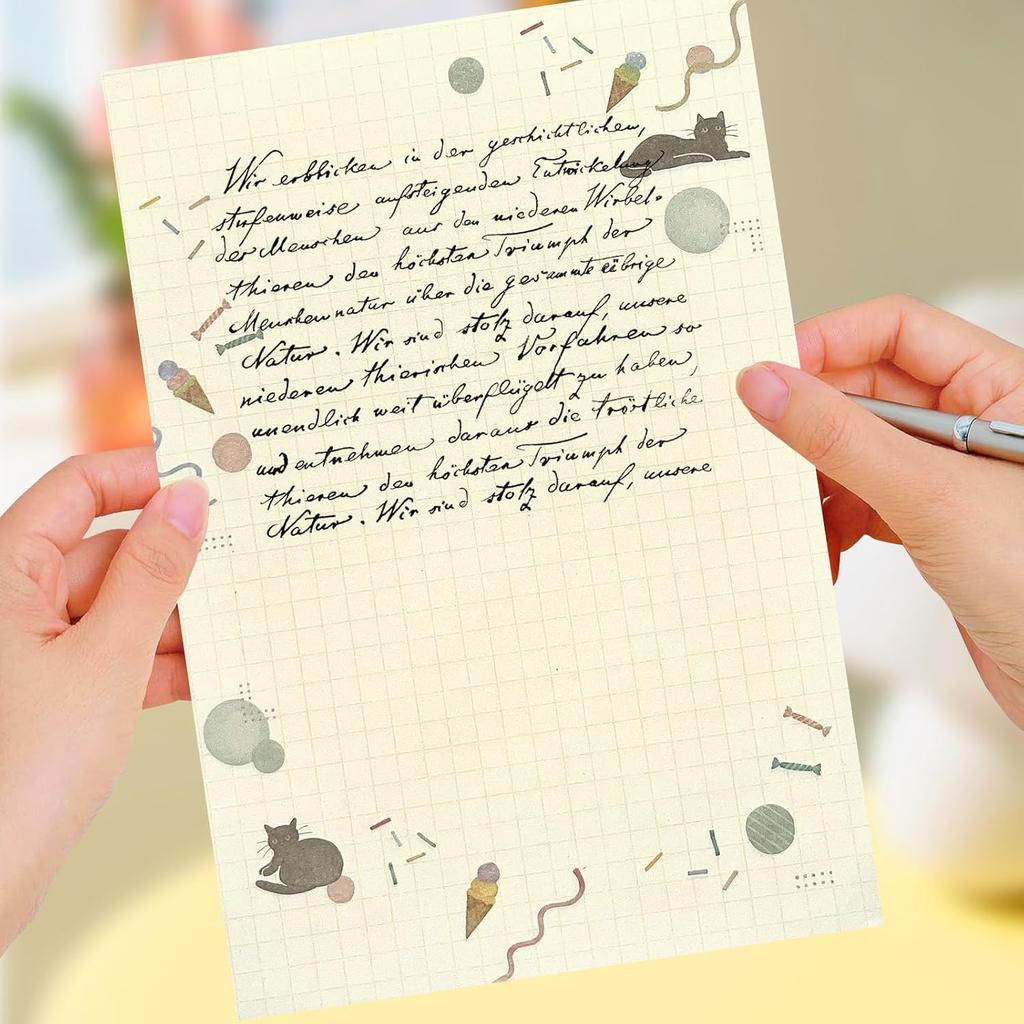 Wir erblicken in der geschichtlichen,
stufenweise aufsteigenden Entwickelung
der Menschen aus den niederen Wirbel-
thieren den höchsten Triumph der
Menschennatur über die gesammte übrige
Natur. Wir sind stolz darauf, unsere
niederen thierischen Vorfahren so
unendlich weit überflügelt zu haben,
und entnehmen daraus die tröstliche
thieren den höchsten Triumph der
Natur. Wir sind stolz darauf, unsere